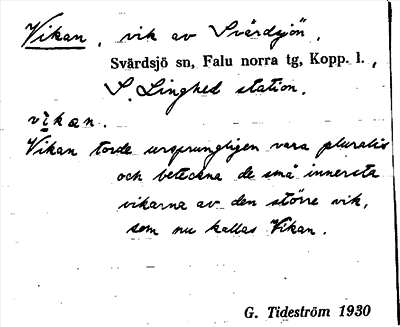 Vikan, vik av Svärdsjön,
Svärdsjö sn, Falu norra tg, Kopp. l.,
S. Linghed station.
vikan.
Vikan torde ursprungligen vara pluralis
och beteckna de små innersta
vikarna av den större vik,
som nu kallas Vikan.
G. Tideström 1930